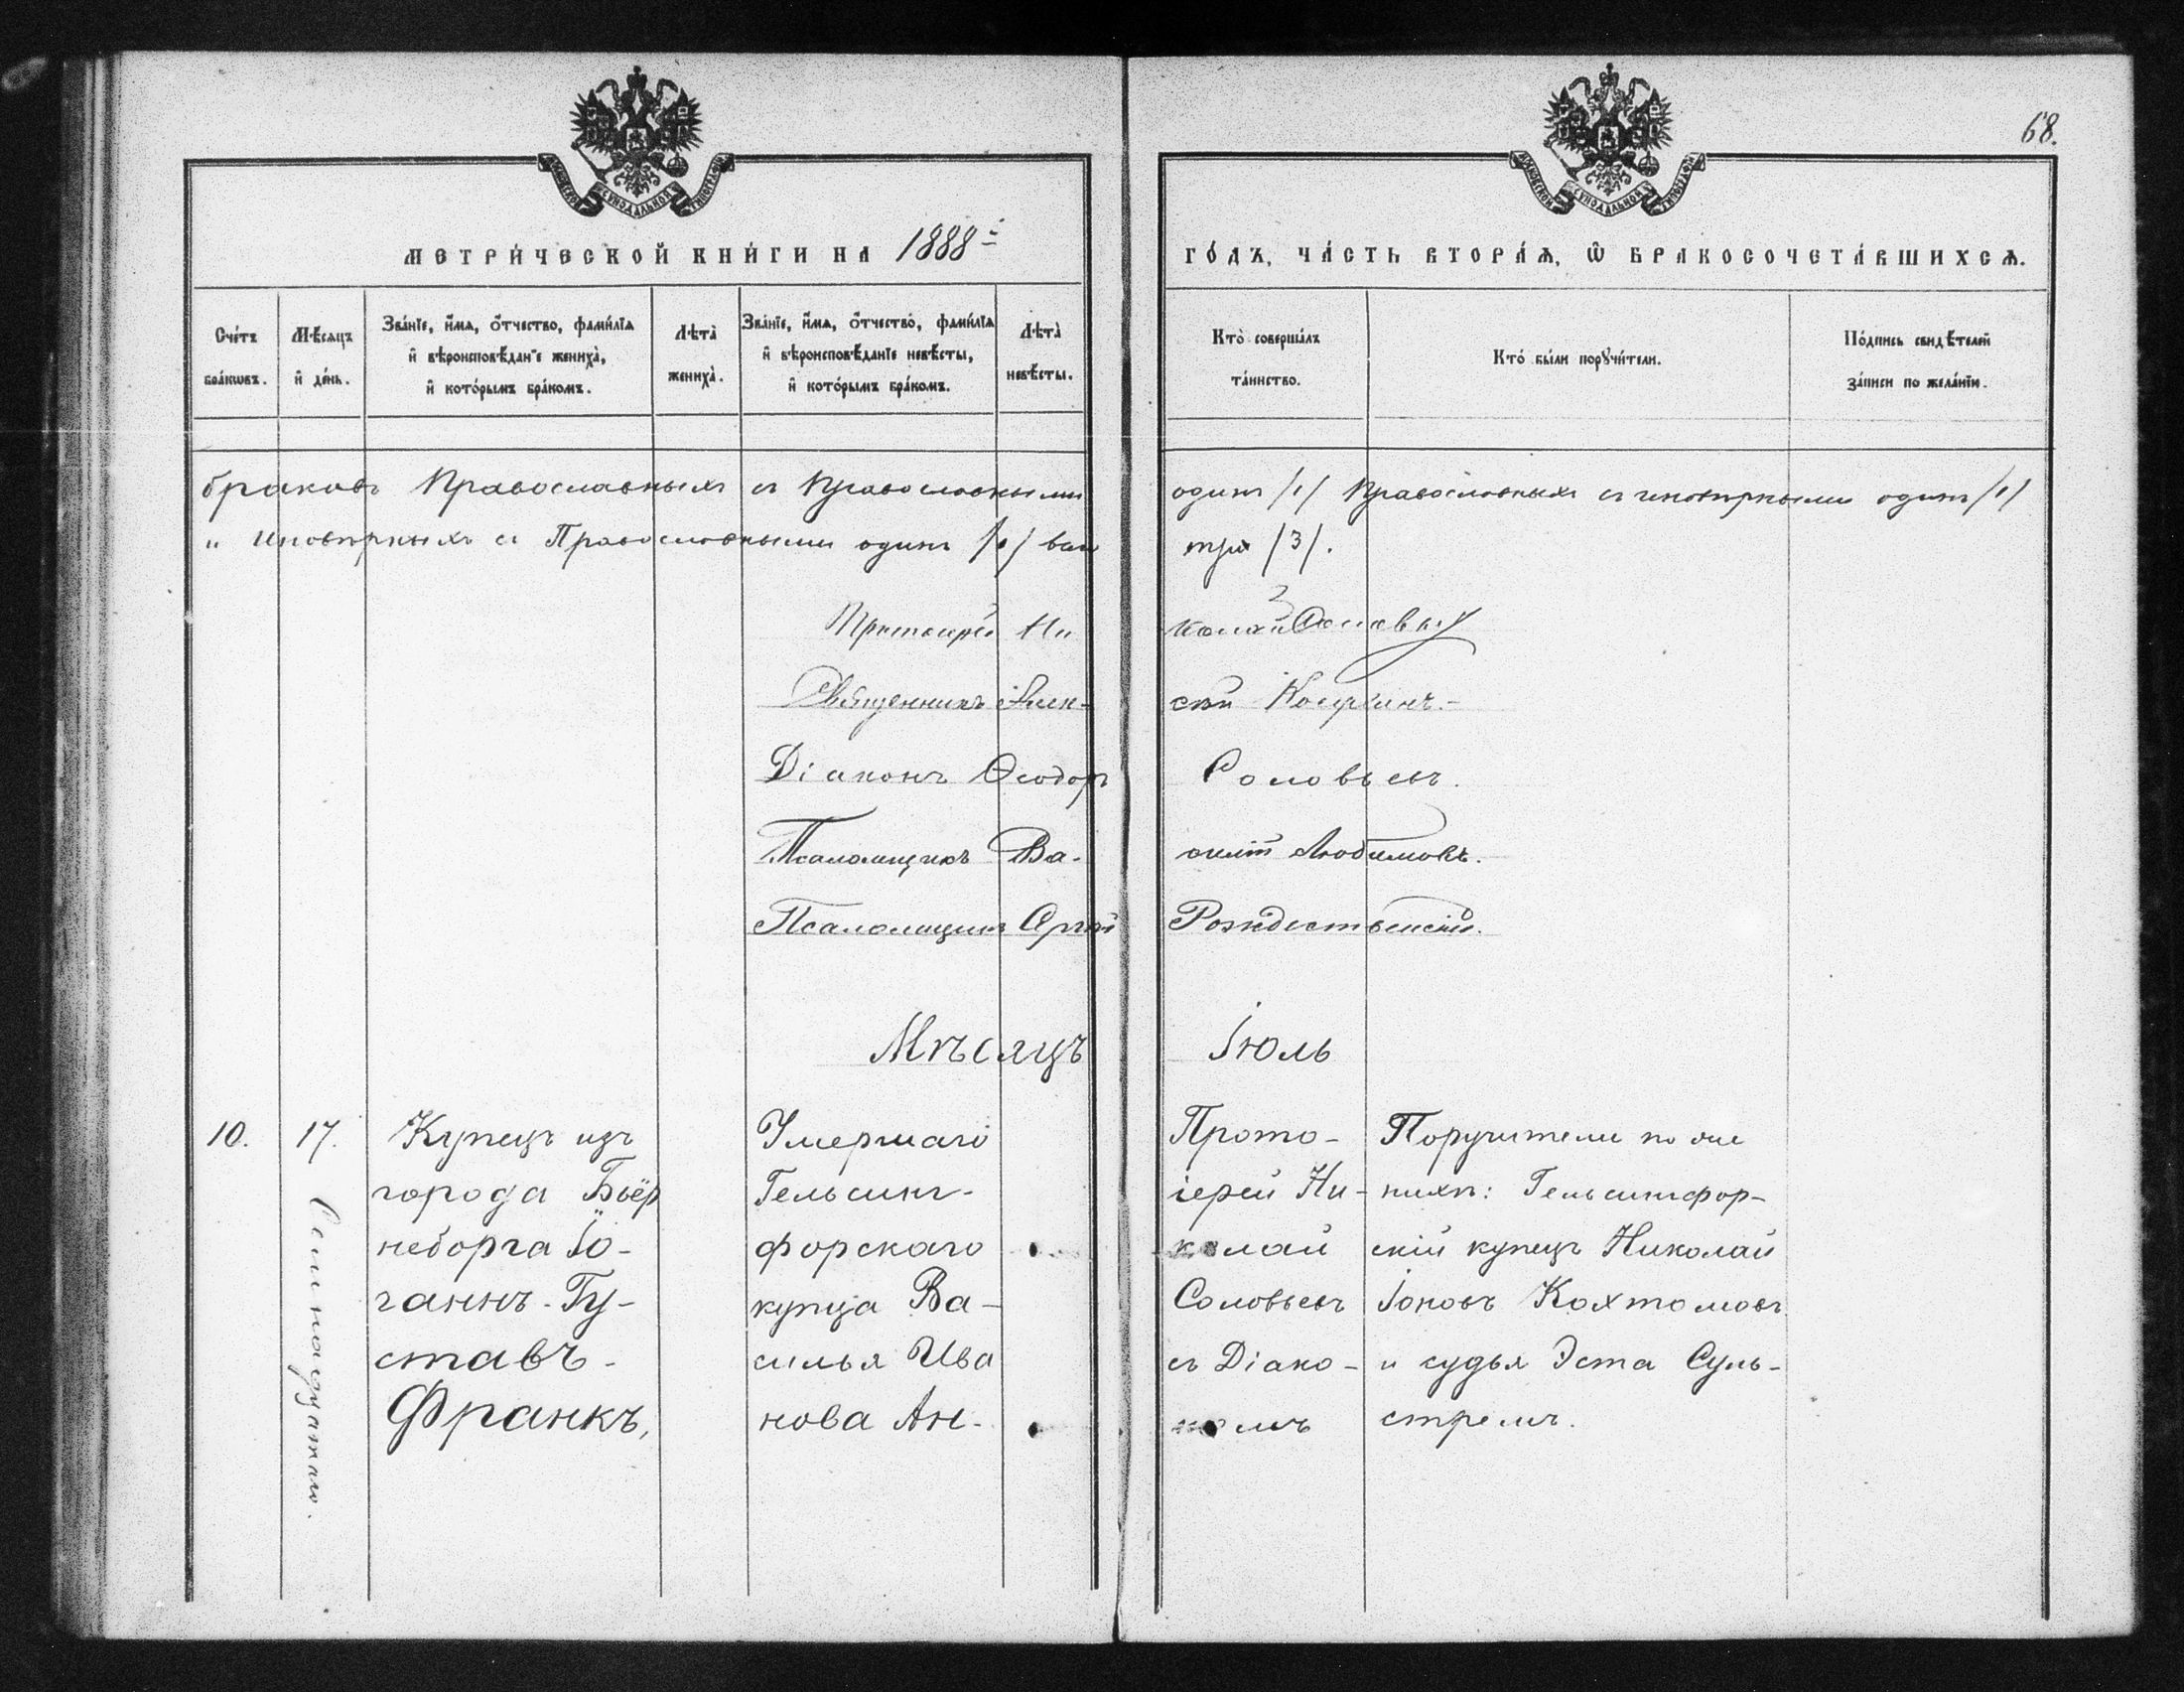 68.
МЕТРИ́ЧЕСКОЙ КНИ́ГИ НА 1888й
ГО́ДЪ, ЧА́СТЬ ВТОРА́Ѧ, Ѿ БРАКОСОЧЕТА́ВШИХСѦ.
Сче́тъ бра́кѡвъ.
Мѣ́сѧцъ и҆ де́нь.
Зва́нїе, и҆́мѧ, ѻ҆́тчество, фамѝлїѧ
и҆ вѣроисповѣ́данїе жениха̀,
и҆ кото́рымъ бра́комъ.
Лѣта̀ жениха̀.
Зва́нїе, и҆́мѧ, ѻ҆́тчество, фамѝлїѧ
и҆ вѣроисповѣ́данїе невѣ́сты,
и҆ кото́рымъ бра́комъ.
Лѣта̀ невѣ́сты.
Кто̀ соверша́лъ
та́инство.
Кто́ бы́ли порꙋчи́тели.
По́дпись свидѣ́телей
за́писи по жела́нїю.
браковъ Православныхъ съ Православными одинъ /1/ Православныхъ съ иновѣрными одинъ /1/
" иновѣрныхъ съ Православными одинъ /1/ всего три /3/.
Протоіерей Николай Соловьевъ
Священникъ Алексѣй
Діаконъ Ѳеодоръ Соловьевъ.
Псаломщикъ Василій Любимовъ.
Псаломщикъ Сергѣй Рождественскій.
Мѣсяцъ Іюль
10.
17.
Семнадцатаго.
Купецъ изъ
города Бьёр
неборга Іо-
ганнъ-Гу-
ставъ-
Франкъ,
Умершаго
Гельсинг-
форскаго
купца Ва-
силья Ива
нова Ан-
Прото-
іерей Ни-
колай
Соловьевъ
съ Діако-
номъ
Поручители по же
нихѣ: Гельсингфор-
скій купецъ Николай
Іоновъ Кохтомовъ
и судья Эста Суль-
стремъ.